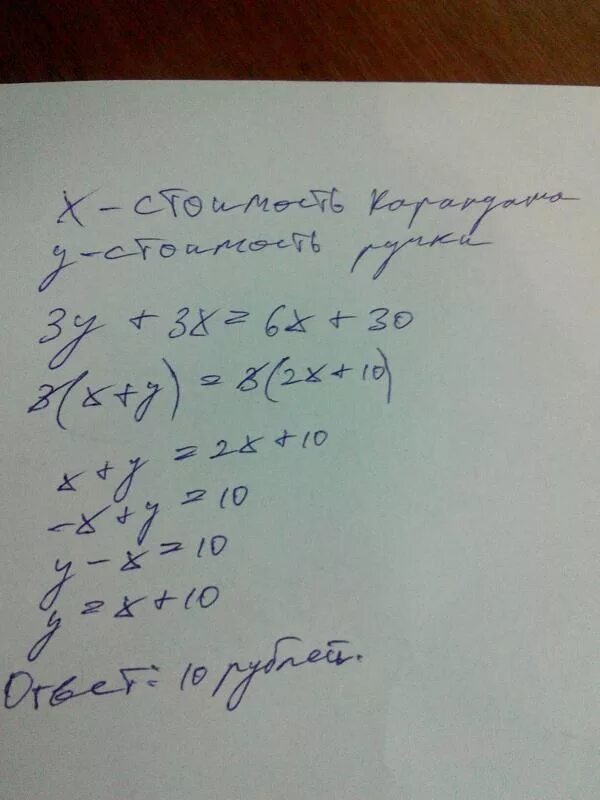 x - стоимость карандаша
y - стоимость ручки
3y + 3x = 6x + 30
3(x+y) = 3(2x+10)
x + y = 2x + 10
-x + y = 10
y - x = 10
y = x + 10
Ответ: 10 рублей.